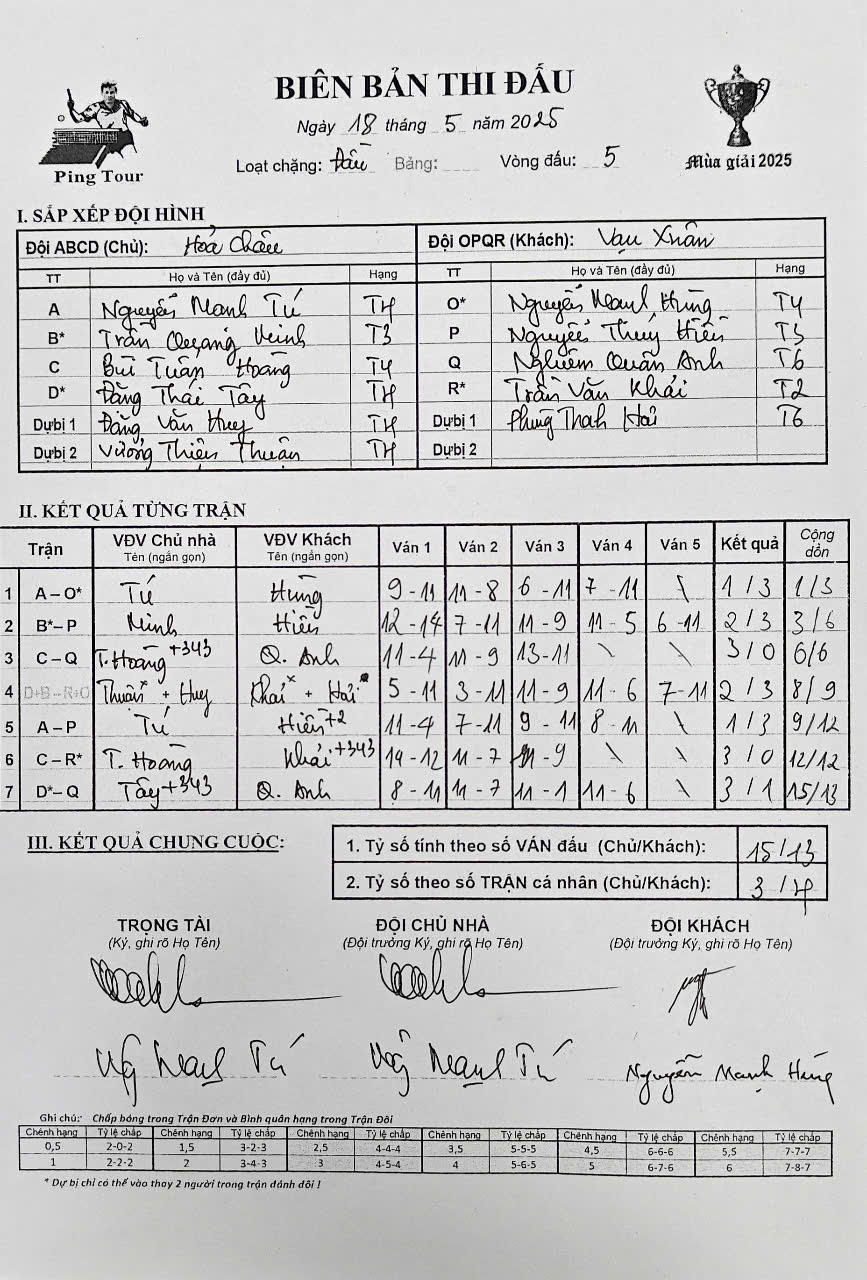 BIÊN BẢN THI ĐẤU
Ngày 18 tháng 5 năm 2025
Ping Tour
Loạt chặng: Đầu Bảng: Vòng đấu: 5
Mùa giải 2025
I. SẮP XẾP ĐỘI HÌNH
Đội ABCD (Chủ): Hỏa Châu Đội OPQR (Khách): Vạn Xuân
TT Họ và Tên (đầy đủ) Hạng TT Họ và Tên (đầy đủ) Hạng
A Nguyễn Mạnh Tú T4 O* Nguyễn Mạnh Hùng T4
B* Trần Quang Minh T3 P Nguyễn Thúy Hiền T5
C Bùi Tuấn Hoàng T4 Q Nghiêm Quân Anh T6
D* Đặng Thái Tây T4 R* Trần Văn Khải T2
Dự bị 1 Đặng Văn Huy T4 Dự bị 1 Phùng Thah Hải T6
Dự bị 2 Vương Thiện Thuận T4 Dự bị 2
II. KẾT QUẢ TỪNG TRẬN
Trận VĐV Chủ nhà Tên (ngắn gọn) VĐV Khách Tên (ngắn gọn) Ván 1 Ván 2 Ván 3 Ván 4 Ván 5 Kết quả Cộng dồn
1 A – O* Tú Hùng 9 - 11 11 - 8 6 - 11 7 - 11 \ 1 / 3 1/3
2 B* – P Minh Hiền 12 - 14 7 - 11 11 - 9 11 - 5 6 - 11 2 / 3 3/6
3 C – Q T. Hoàng +343 Q. Anh 11 - 4 11 - 9 13 - 11 \ \ 3 / 0 6/6
4 D+B – R+O Thuận* + Huy Khải* + Hải* 5 - 11 3 - 11 11 - 9 11 - 6 7 - 11 2 / 3 8 / 9
5 A – P Tú Hiền +2 11 - 4 7 - 11 9 - 11 8 - 11 \ 1 / 3 9/12
6 C – R* T. Hoàng Khải +343 14 - 12 11 - 7 11 - 9 \ \ 3 / 0 12/12
7 D* – Q Tây +343 Q. Anh 8 - 11 11 - 7 11 - 1 11 - 6 \ 3 / 1 15/13
III. KẾT QUẢ CHUNG CUỘC:
1. Tỷ số tính theo số VÁN đấu (Chủ/Khách): 15/13
2. Tỷ số theo số TRẬN cá nhân (Chủ/Khách): 3 / 4
TRỌNG TÀI ĐỘI CHỦ NHÀ ĐỘI KHÁCH
(Ký, ghi rõ Họ Tên) (Đội trưởng Ký, ghi rõ Họ Tên) (Đội trưởng Ký, ghi rõ Họ Tên)
Ng Mạnh Tú Ng Mạnh Tú Nguyễn Mạnh Hùng
Ghi chú: Chấp bóng trong Trận Đơn và Bình quân hạng trong Trận Đôi
Chênh hạng Tỷ lệ chấp Chênh hạng Tỷ lệ chấp Chênh hạng Tỷ lệ chấp Chênh hạng Tỷ lệ chấp Chênh hạng Tỷ lệ chấp Chênh hạng Tỷ lệ chấp
0,5 2-0-2 1,5 3-2-3 2,5 4-4-4 3,5 5-5-5 4,5 6-6-6 5,5 7-7-7
1 2-2-2 2 3-4-3 3 4-5-4 4 5-6-5 5 6-7-6 6 7-8-7
* Dự bị chỉ có thể vào thay 2 người trong trận đánh đôi !